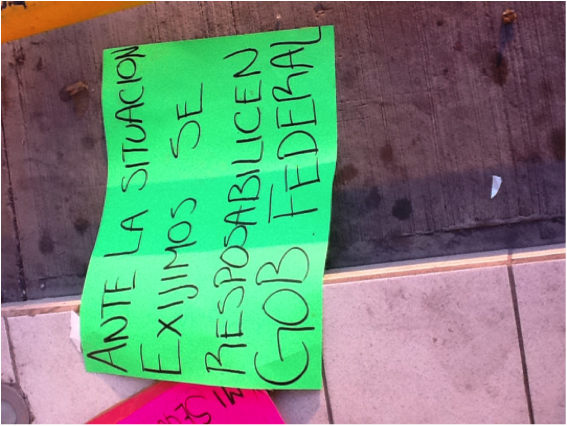 ANTE LA SITUACION
EXIJIMOS SE
RESPOSABILICEN
GOB FEDERAL